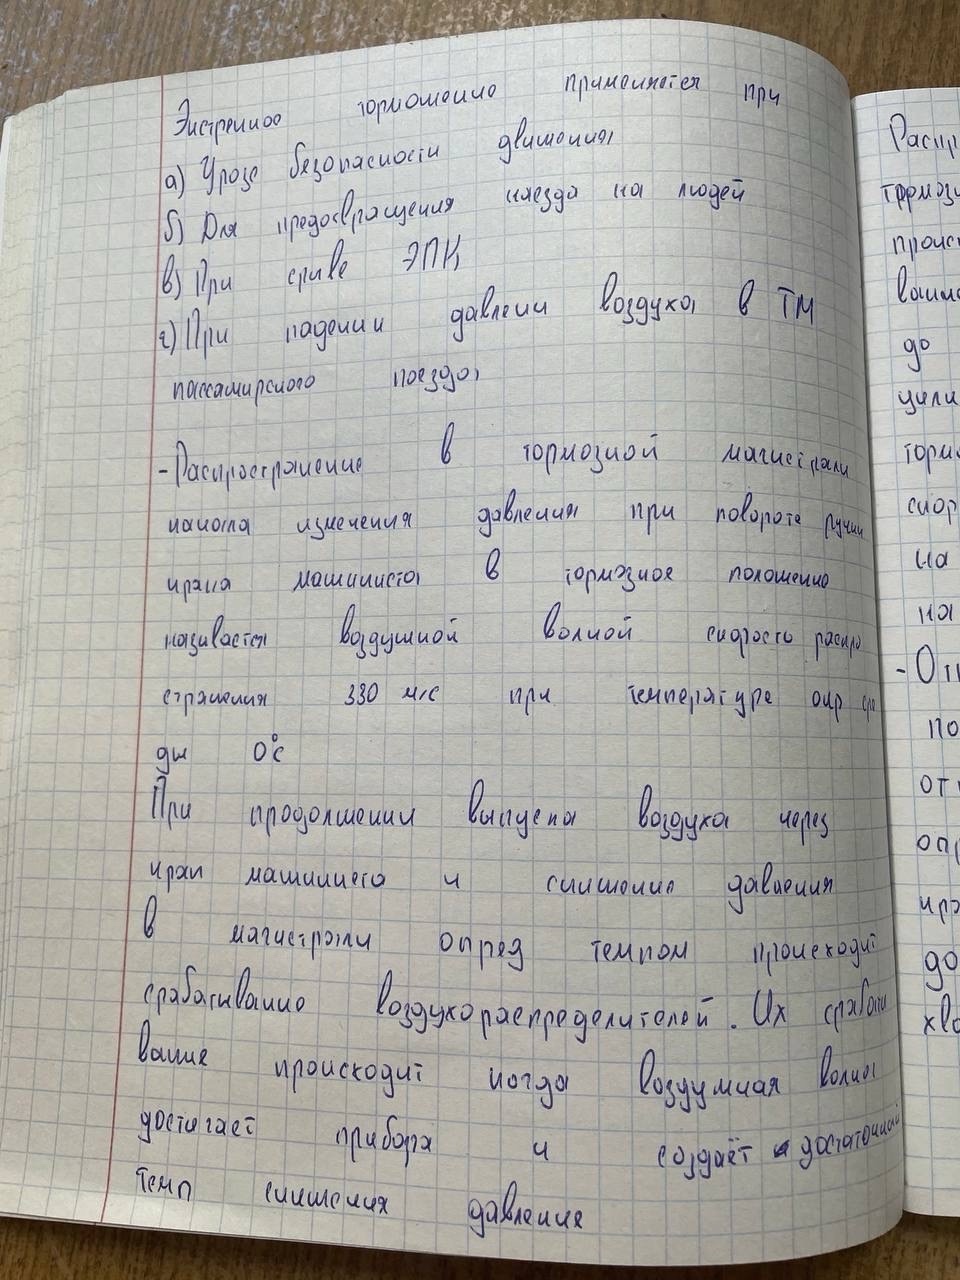 Экстренное торможение применяется при
а) Угрозе безопасности движения
б) Для предотвращения наезда на людей
в) При срыве ЭПК
г) При падении давлении воздуха в ТМ
пассажирского поезда
- Распространение в тормозной магистрали
начала изменения давления при повороте ручки
крана машиниста в тормозное положение
называется воздушной волной скорость распро
странения 330 м/с при температуре окр сре
ды 0°с
При продолжении выпуска воздуха через
кран машиниста и снижение давления
в магистрали опред темпом происходит
срабатывание воздухораспределителей. Их срабаты
вание происходит когда воздушная волна
достигает прибора и создаёт достаточный
темп снижения давления
Распр
тормоз
проис
ваши
до
цили
торм
скор
на
на
- От
по
от
опр
кра
до
хво